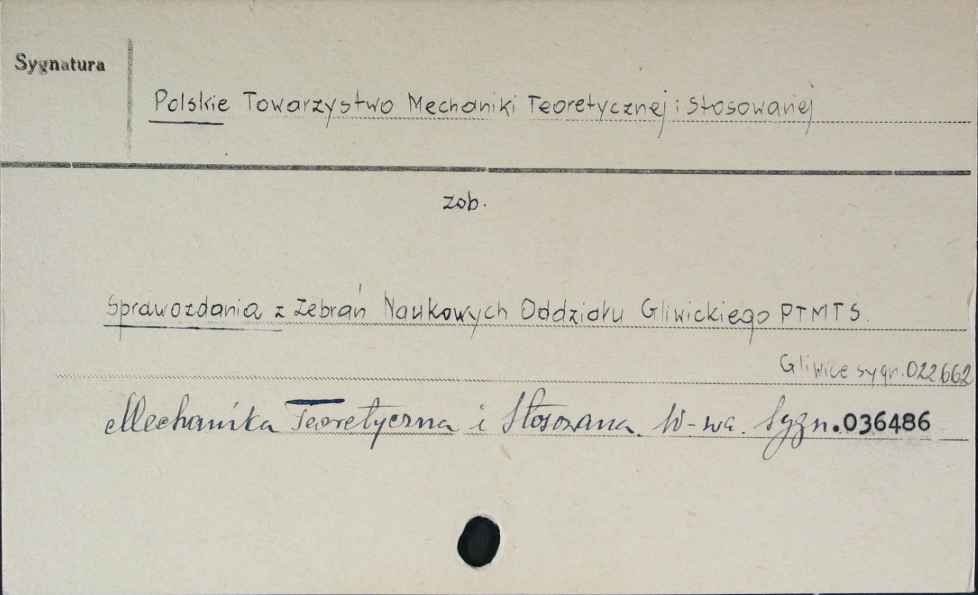 Sygnatura
Polskie Towarzystwo Mechaniki Teoretycznej i Stosowanej
zob.
Sprawozdania z Zebrań Naukowych Oddziału Gliwickiego PTMTS.
Gliwice sygn. 022662
Mechanika Teoretyczna i Stosowana. W-wa. Sygn. 036486